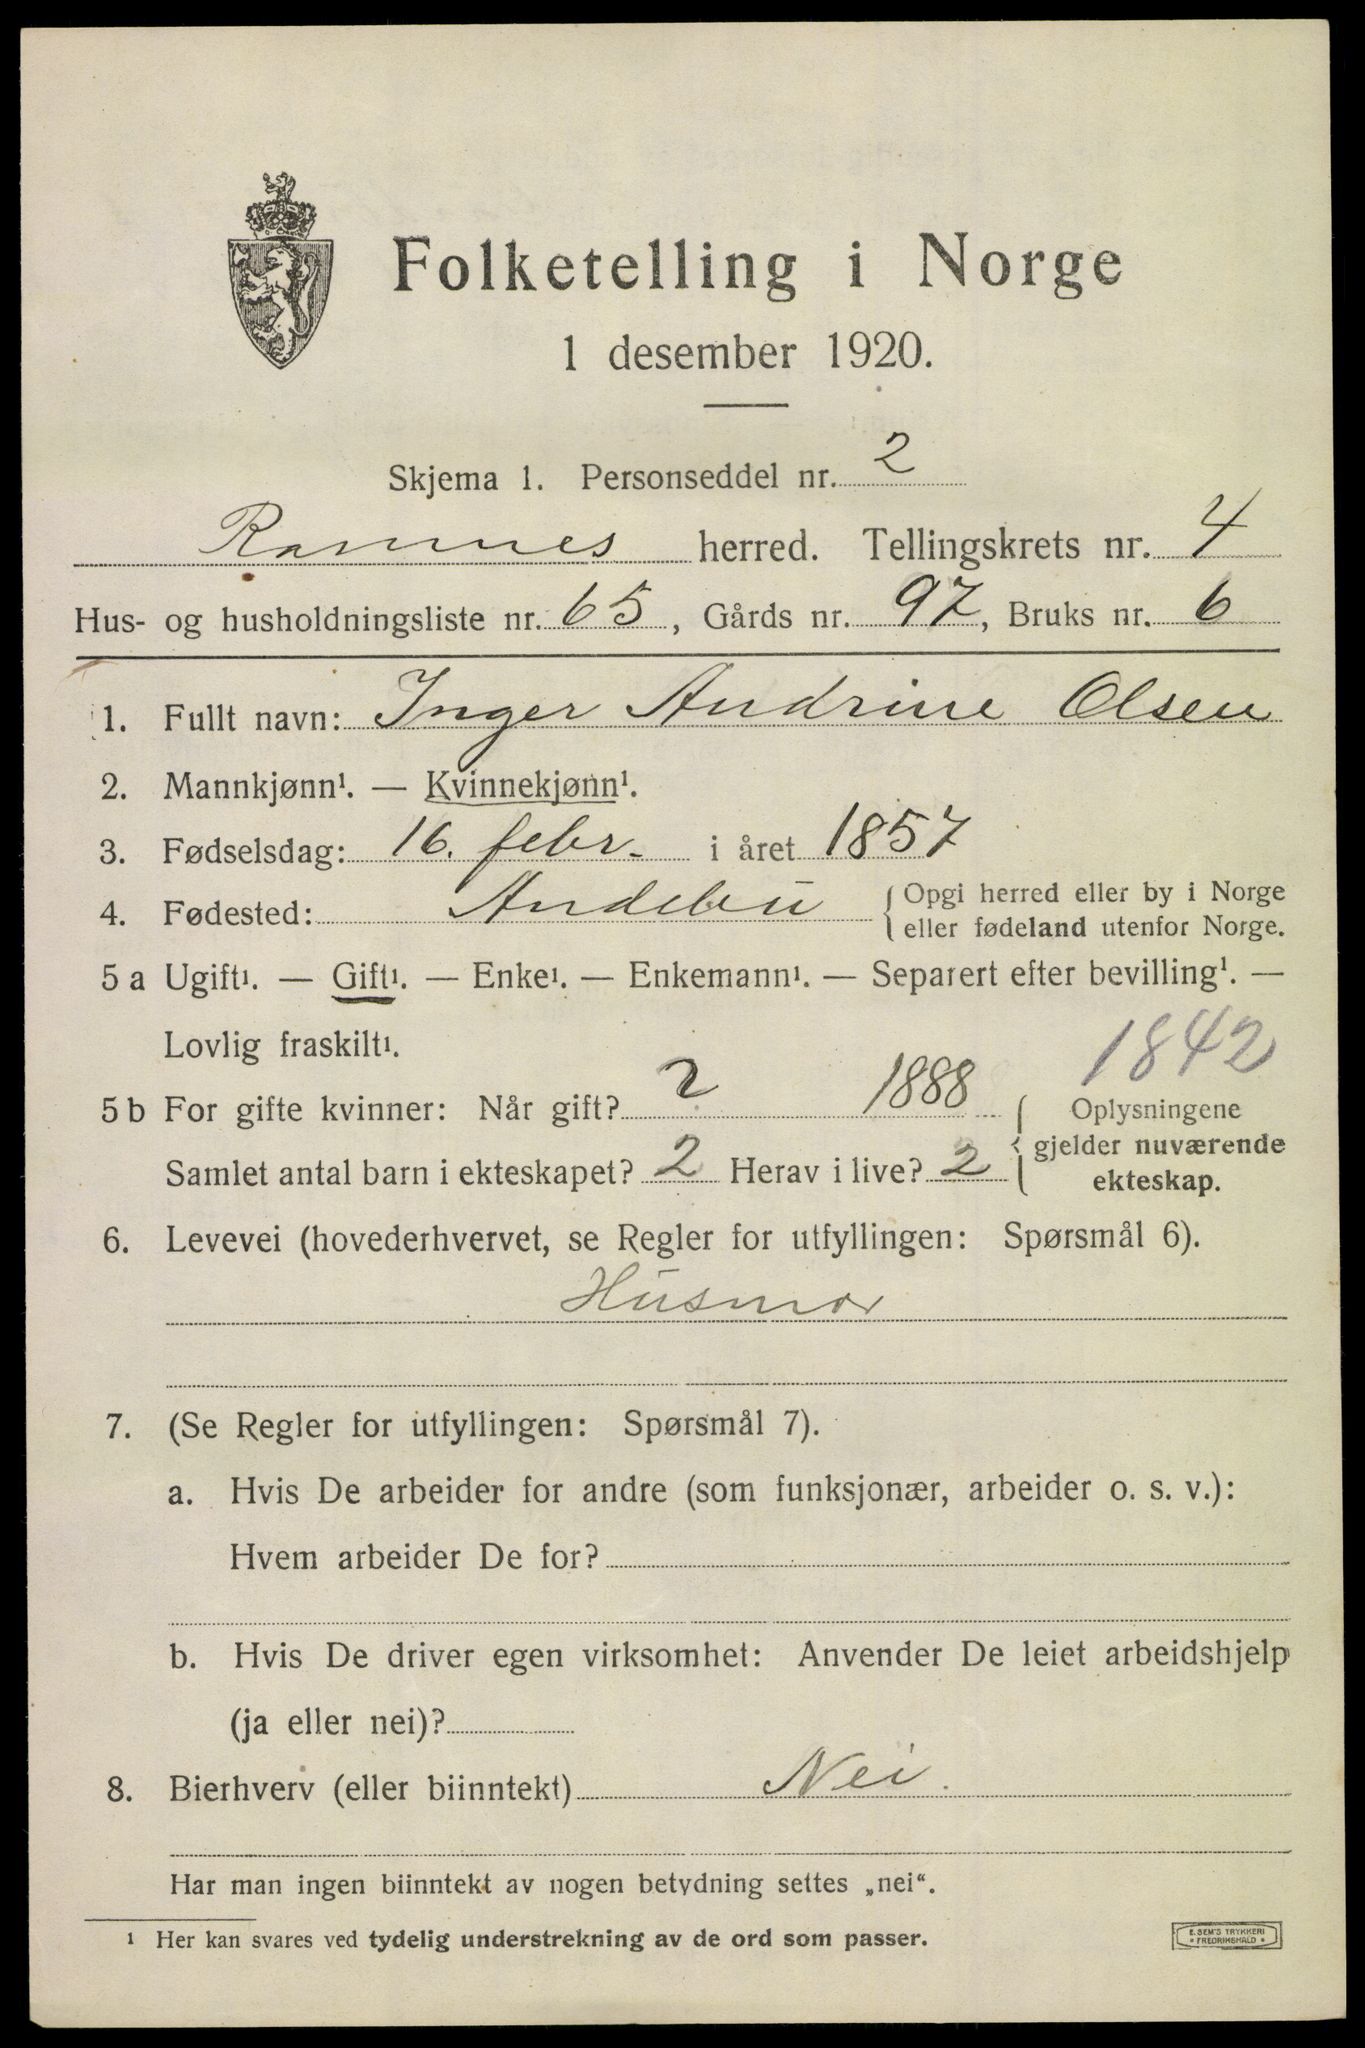 Folketelling i Norge
1 desember 1920.
Skjema 1. Personseddel nr. 2
Ramnes herred. Tellingskrets nr. 4
Hus- og husholdningsliste nr. 65, Gårds nr. 97, Bruks nr. 6
1. Fullt navn: Inger Andrine Olsen
2. Mannkjønn¹. — Kvinnekjønn¹.
3. Fødselsdag: 16. febr. i året 1857
4. Fødested: Andebu { Opgi herred eller by i Norge
eller fødeland utenfor Norge.
5 a Ugift¹. — Gift¹. — Enke¹. — Enkemann¹. — Separert efter bevilling¹. —
Lovlig fraskilt¹.
1842
5 b For gifte kvinner: Når gift? ? 1888 { Oplysningene
gjelder nuværende
Samlet antal barn i ekteskapet? 2 Herav i live? 2
ekteskap.
6. Levevei (hovederhvervet, se Regler for utfyllingen: Spørsmål 6).
Husmor
7. (Se Regler for utfyllingen: Spørsmål 7).
a. Hvis De arbeider for andre (som funksjonær, arbeider o. s. v.):
Hvem arbeider De for?
b. Hvis De driver egen virksomhet: Anvender De leiet arbeidshjelp
(ja eller nei)?
8. Bierhverv (eller biinntekt) Nei.
Har man ingen biinntekt av nogen betydning settes „nei“.
¹ Her kan svares ved tydelig understrekning av de ord som passer.
E. SEM'S TRYKKERI
• FREDRIKSHALD •